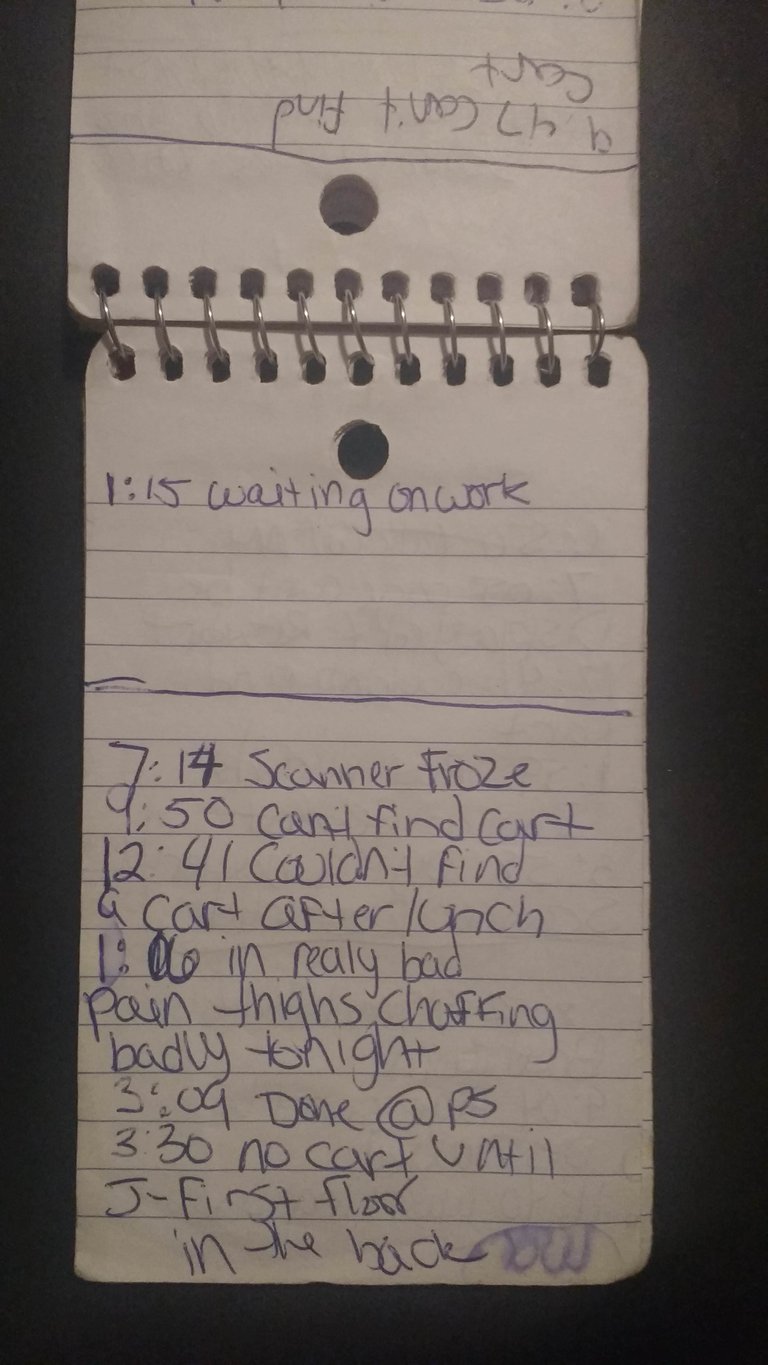 9 47 Can't find
Cart
1:15 waiting on work
7:14 Scanner Froze
9:50 Can't find Cart
12:41 Couldn't find
a cart after lunch
1:06 in realy bad
pain thighs chaffing
badly tonight
3:09 Done @ PS
3:30 no cart until
J-First floor
in the back